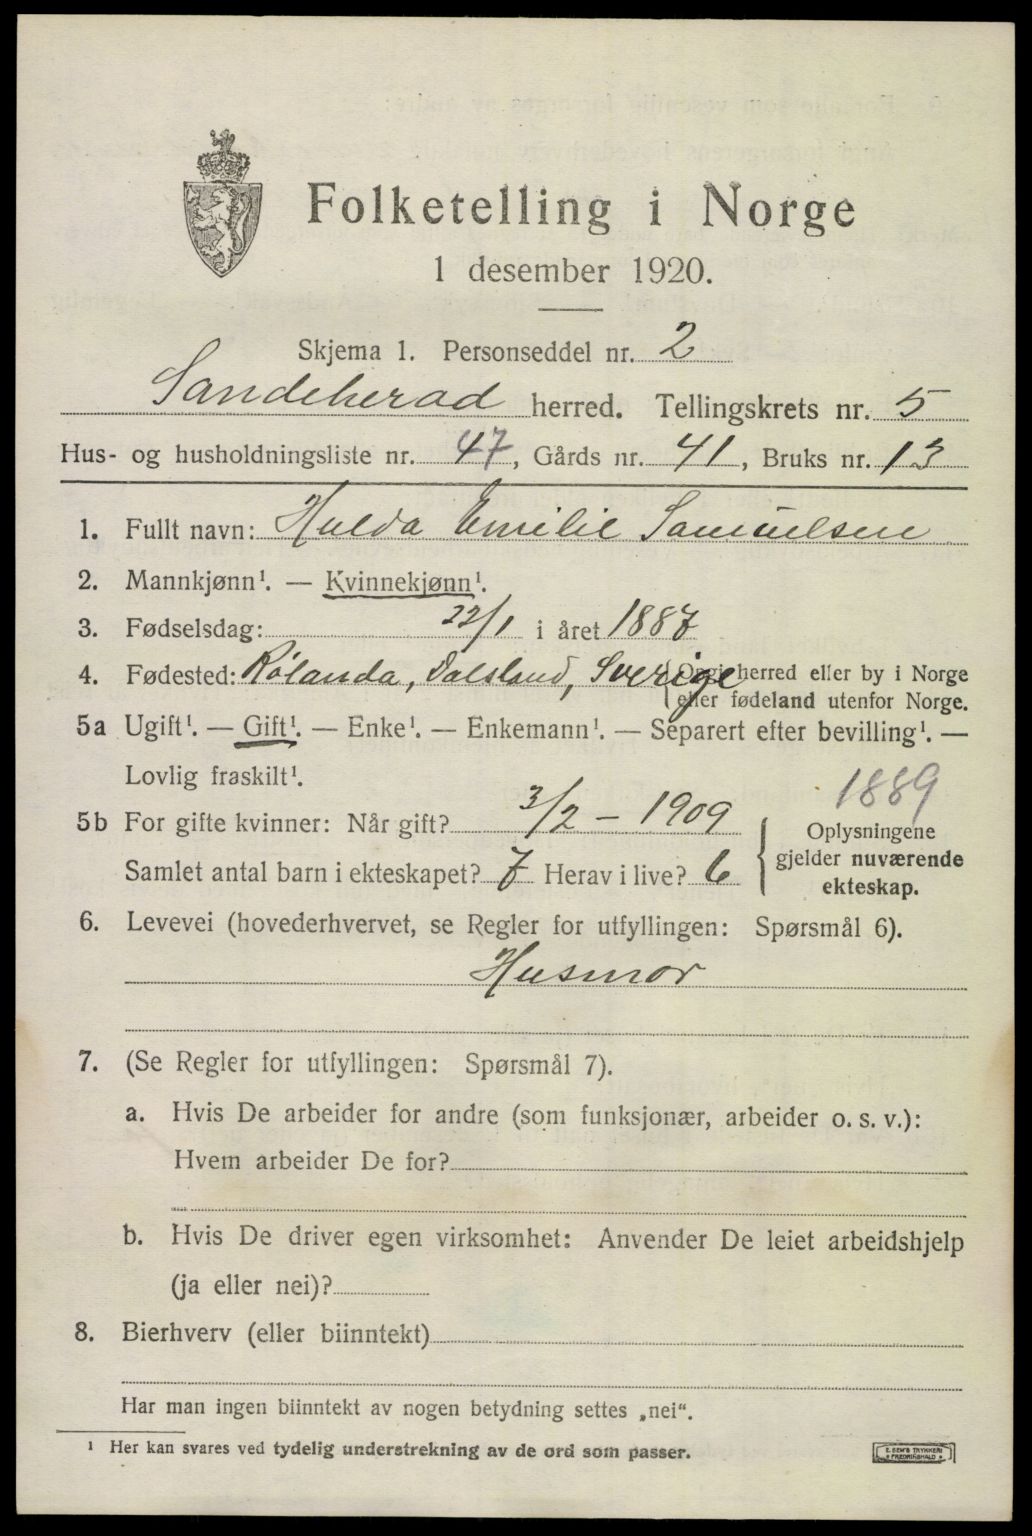 Folketelling i Norge
1 desember 1920.
Skjema 1. Personseddel nr. 2
Sandeherad herred. Tellingskrets nr. 5
Hus- og husholdningsliste nr. 47, Gårds nr. 41, Bruks nr. 13
1. Fullt navn: Hulda Emilie Samuelsen
2. Mannkjønn¹. — Kvinnekjønn¹.
3. Fødselsdag: 22/1 i året 1887
4. Fødested: Rølanda, Dalsland, Sverige (Opgi herred eller by i Norge
eller fødeland utenfor Norge.
5a Ugift¹. — Gift¹. — Enke¹. — Enkemann¹. — Separert efter bevilling¹. —
Lovlig fraskilt¹.
1889
5b For gifte kvinner: Når gift? 3/2 – 1909
Samlet antal barn i ekteskapet? 7 Herav i live? 6
Oplysningene
gjelder nuværende
ekteskap.
6. Levevei (hovederhvervet, se Regler for utfyllingen: Spørsmål 6).
Husmor
7. (Se Regler for utfyllingen: Spørsmål 7).
a. Hvis De arbeider for andre (som funksjonær, arbeider o. s. v.):
Hvem arbeider De for?
b. Hvis De driver egen virksomhet: Anvender De leiet arbeidshjelp
(ja eller nei)?
8. Bierhverv (eller biinntekt)
Har man ingen biinntekt av nogen betydning settes „nei“.
¹ Her kan svares ved tydelig understrekning av de ord som passer.
E. SEM'S TRYKKERI
FREDRIKSHALD